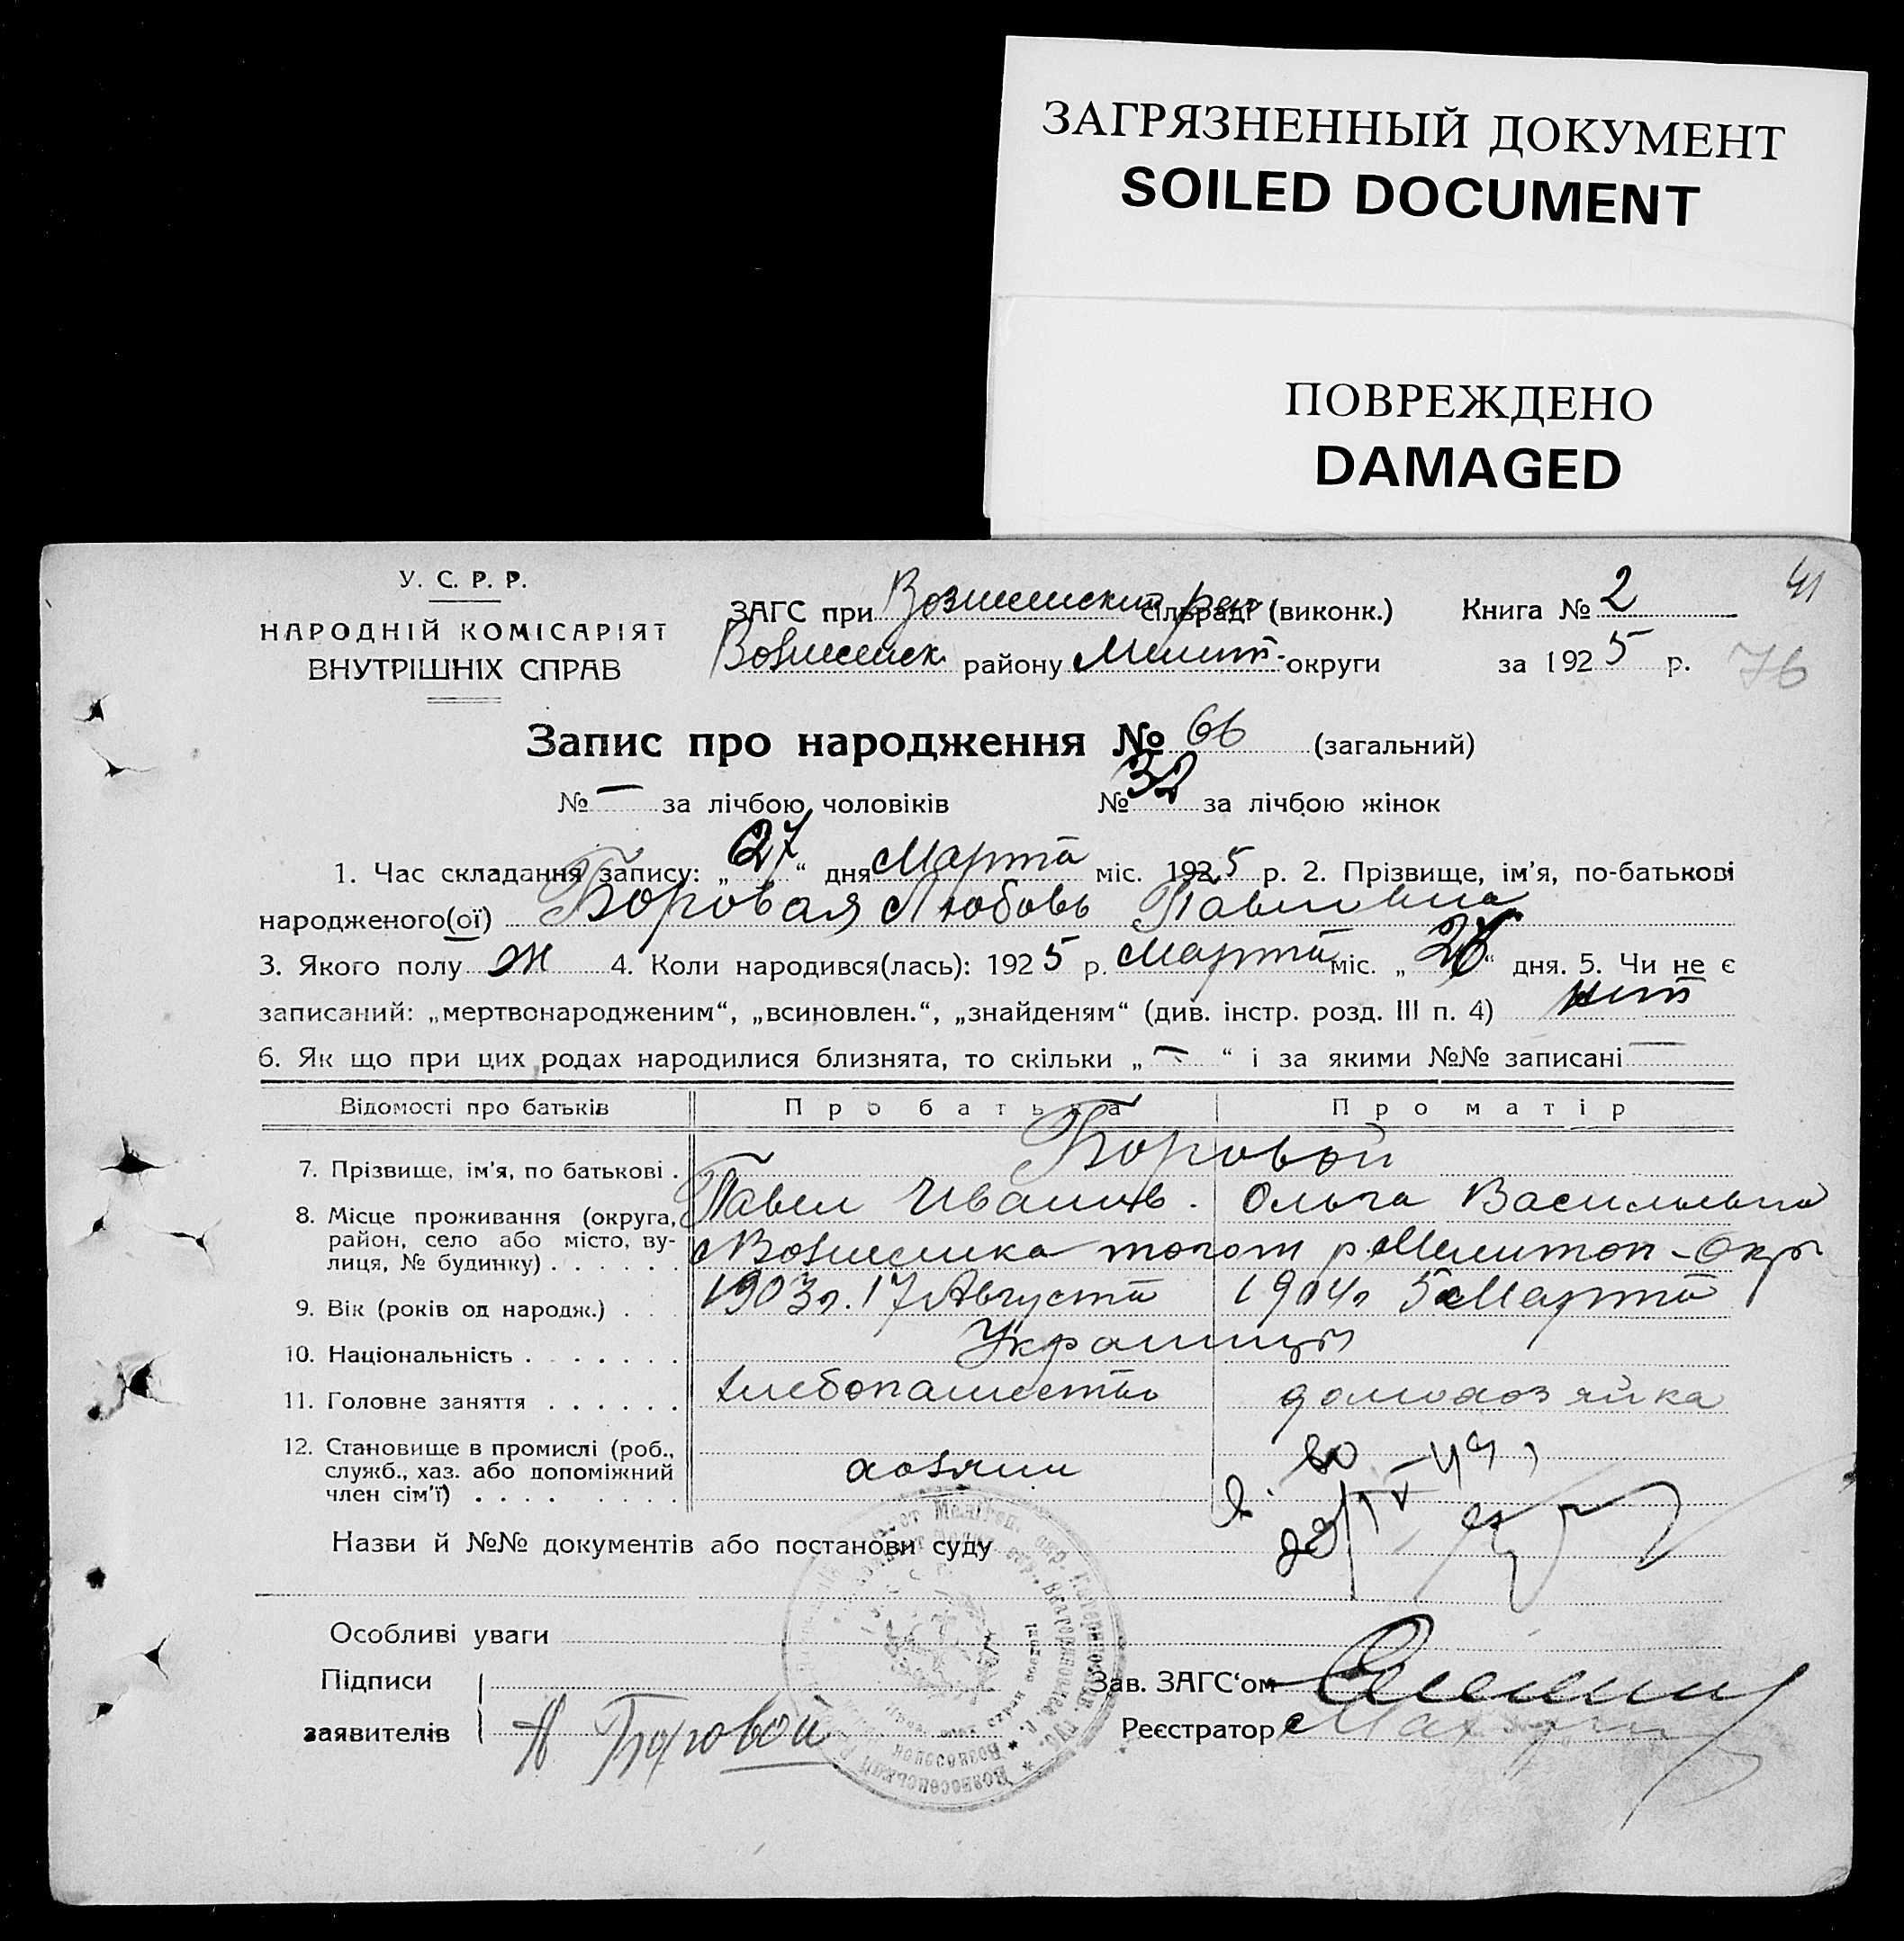 ЗАГРЯЗНЕННЫЙ ДОКУМЕНТ
SOILED DOCUMENT
ПОВРЕЖДЕНО
DAMAGED
41
У. С. Р. Р.
НАРОДНІЙ КОМІСАРІЯТ
ВНУТРІШНІХ СПРАВ
ЗАГС при сільраді (виконк.) Книга № 2
района Мелит. округи за 1925 р. 76
Запис про народження № 66 (загальний)
№ — за лічбою чоловіків № 32 за лічбою жінок
1. Час складання запису: „27“ дня Марта міс. 1925 р. 2. Прізвище, ім'я, по-батькові
народженого(ої) Боровая Любовь Павловна
3. Якого полу Ж 4. Коли народився(лась): 1925 р. Марта міс. „ “ дня. 5. Чи не є
записаний: „мертвонародженим“, „всиновлен.“, „знайденям“ (див. інстр. розд. III п. 4) нет
6. Як що при цих родах народилися близнята, то скільки „—“ і за якими №№ записані —
Відомості про батьків Про батька Про матір
7. Прізвище, ім'я, по батькові . Боровой
Павел Иванов. Ольга Васильевна
8. Місце проживання (округа, район, село або місто, вулиця, № будинку) . . . . . . Вознесенка того р. Мелитоп-Окр
9. Вік (років од народж.) . . . 1903 г. 17 Августа 1904 г 5 Марта
10. Національність . . . . . . . Украинцы
11. Головне заняття . . . . . . хлебопашество домохозяйка
12. Становище в промислі (роб., служб., хаз. або допоміжний член сім'ї) . . . . . . . . хозяин
Назви й №№ документів або постанови суду
Особливі уваги
Підписи
заявителів Боровой
Зав. ЗАГС'ом
Реєстратор